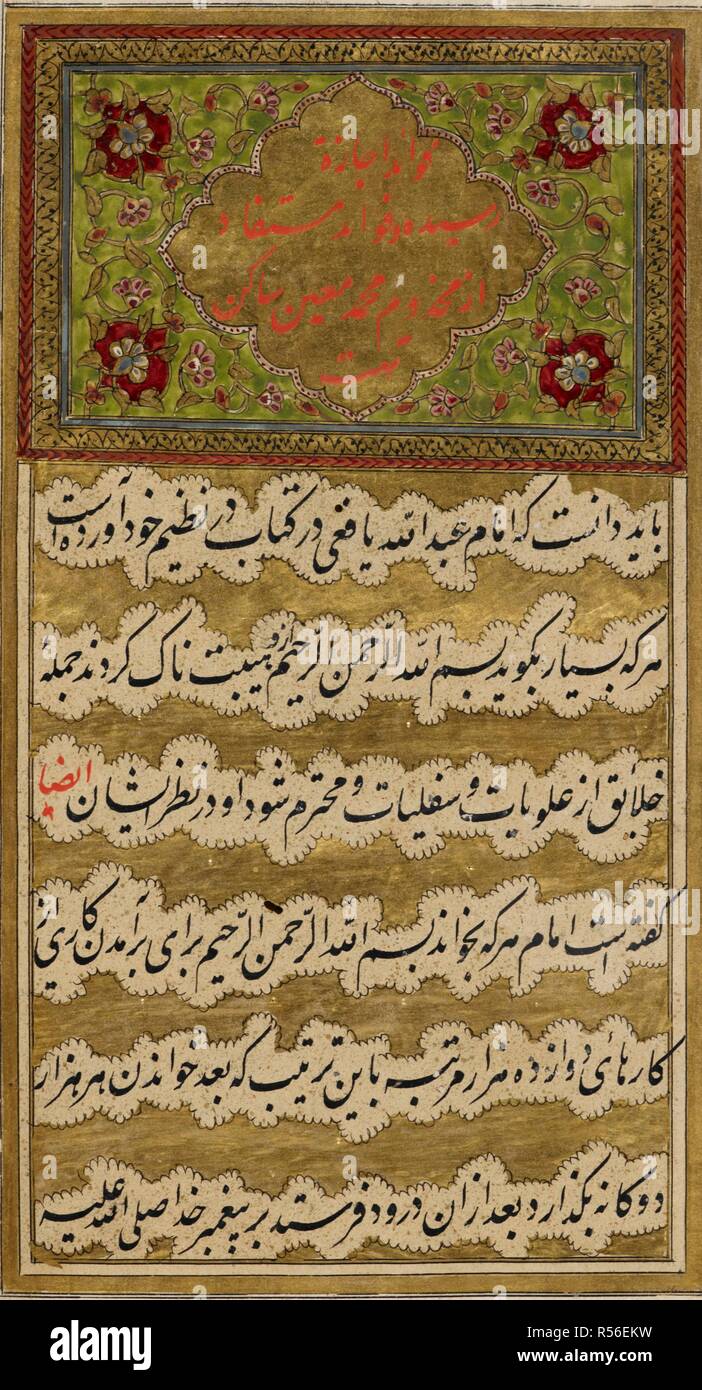 فوائد اجازة
رسیده و فوائد مستفاد
از مخدوم محمد معین ساکن
تته
باید دانست که امام عبد الله یافعی در کتاب در نظیم خود آورده است
هر که بسیار بگوید بسم الله الرّحمن الرّحیم از و هیبت ناک کردند جمله
خلأیق از علویات و سفلیات و محترم شود او در نظر ایشان ایضا
گفته است امام هر که بخواند بسم الله الرّحمن الرّحیم برای برآمدن کاری از
کارهأی دوازده هزار مرتبه باین ترتیب که بعد خواندن هر هزار
دوکانه بگذارد بعد ازان درود فرستد بر پیغمبر خدا صلی الله علیه
alamy
alamy
Image ID: R56EKW
www.alamy.com